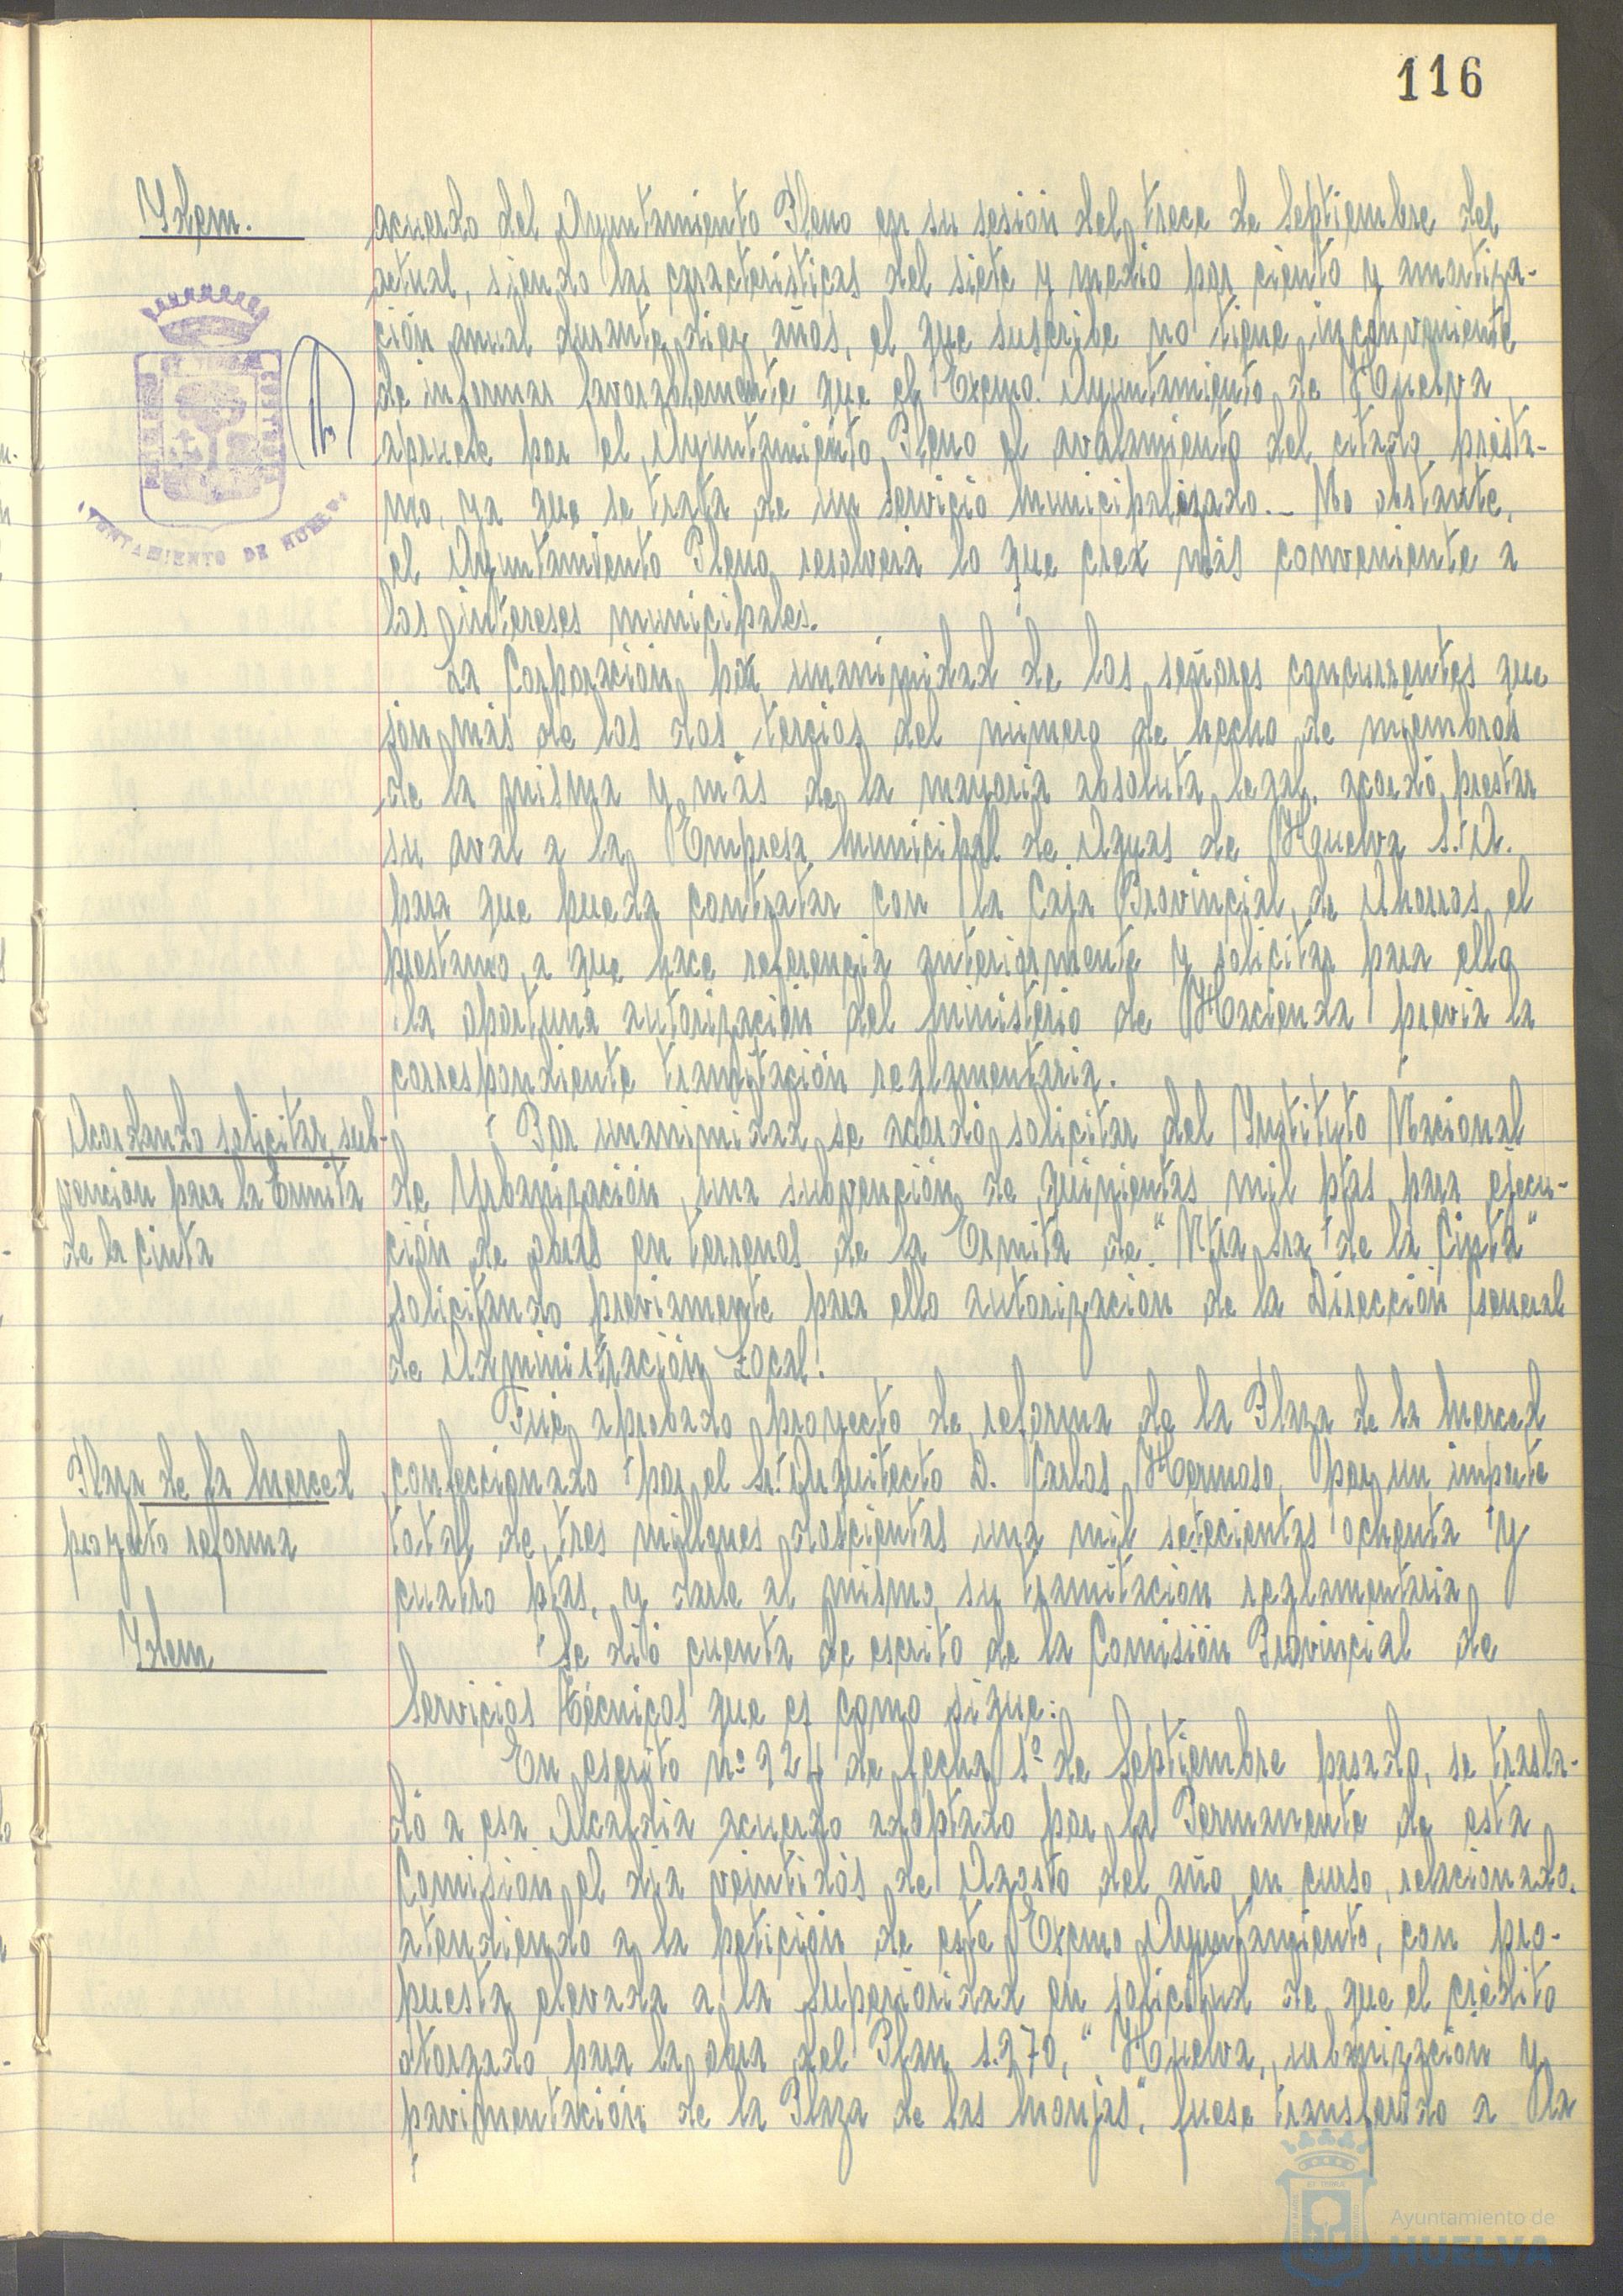 116
Ydem.
acuerdo del Ayuntamiento Pleno en su sesión del trece de Septiembre del
actual, siendo las características del siete y medio por ciento y amortiza-
ción anual durante diez años, el que suscribe no tiene inconveniente
de informar favorablemente que el Excmo. Ayuntamiento de Huelva
apruebe por el Ayuntamiento Pleno el avalamiento del citado présta-
mo, ya que se trata de un Servicio Municipalizado.- No obstante,
el Ayuntamiento Pleno resolverá lo que crea más conveniente a
los intereses municipales.
La Corporación por unanimidad de los señores concurrentes que
son más de los dos tercios del número de hecho de miembros
de la misma y más de la mayoría absoluta legal, acordó prestar
su aval a la Empresa Municipal de Aguas de Huelva S.A.
para que pueda contratar con la Caja Provincial de Ahorros el
prestamo a que hace referencia anteriormente y solicitar para ello
la oportuna autorización del Ministerio de Hacienda previa la
correspondiente tramitación reglamentaria.
Acordando solicitar sub-
vención para la Ermita
de la Cinta
Por unanimidad se acordó solicitar del Instituto Nacional
de Urbanización una subvención de quinientas mil ptas para ejecu-
ción de obras en terrenos de la Ermita de "Ntra Sra de la Cinta"
solicitando previamente para ello autorización de la Dirección General
de Administración Local.
Plaza de la Merced
proyecto reforma
Fué aprobado proyecto de reforma de la Plaza de la Merced
confeccionado por el Sr. Arquitecto D. Carlos Hermoso, por un importe
total de tres millones doscientas una mil setecientas ochenta y
cuatro ptas, y darle al mismo su tramitación reglamentaria
Ydem
Se dió cuenta de escrito de la Comisión Provincial de
Servicios Técnicos que es como sigue:
En escrito nº 924 de fecha 1º de Septiembre pasado, se trasla-
dó a esa Alcaldia acuerdo adoptado por la Permanente de esta
Comisión el día veintidós de Agosto del año en curso, relacionado,
atendiendo a la petición de este Excmo Ayuntamiento, con pro-
puesta elevada a la Superioridad en solicitud de que el crédito
otorgado para la obra del Plan 1.970, "Huelva, urbanización y
pavimentación de la Plaza de las Monjas", fuese transferido a la
AYUNTAMIENTO DE HUELVA
Ayuntamiento de
HUELVA